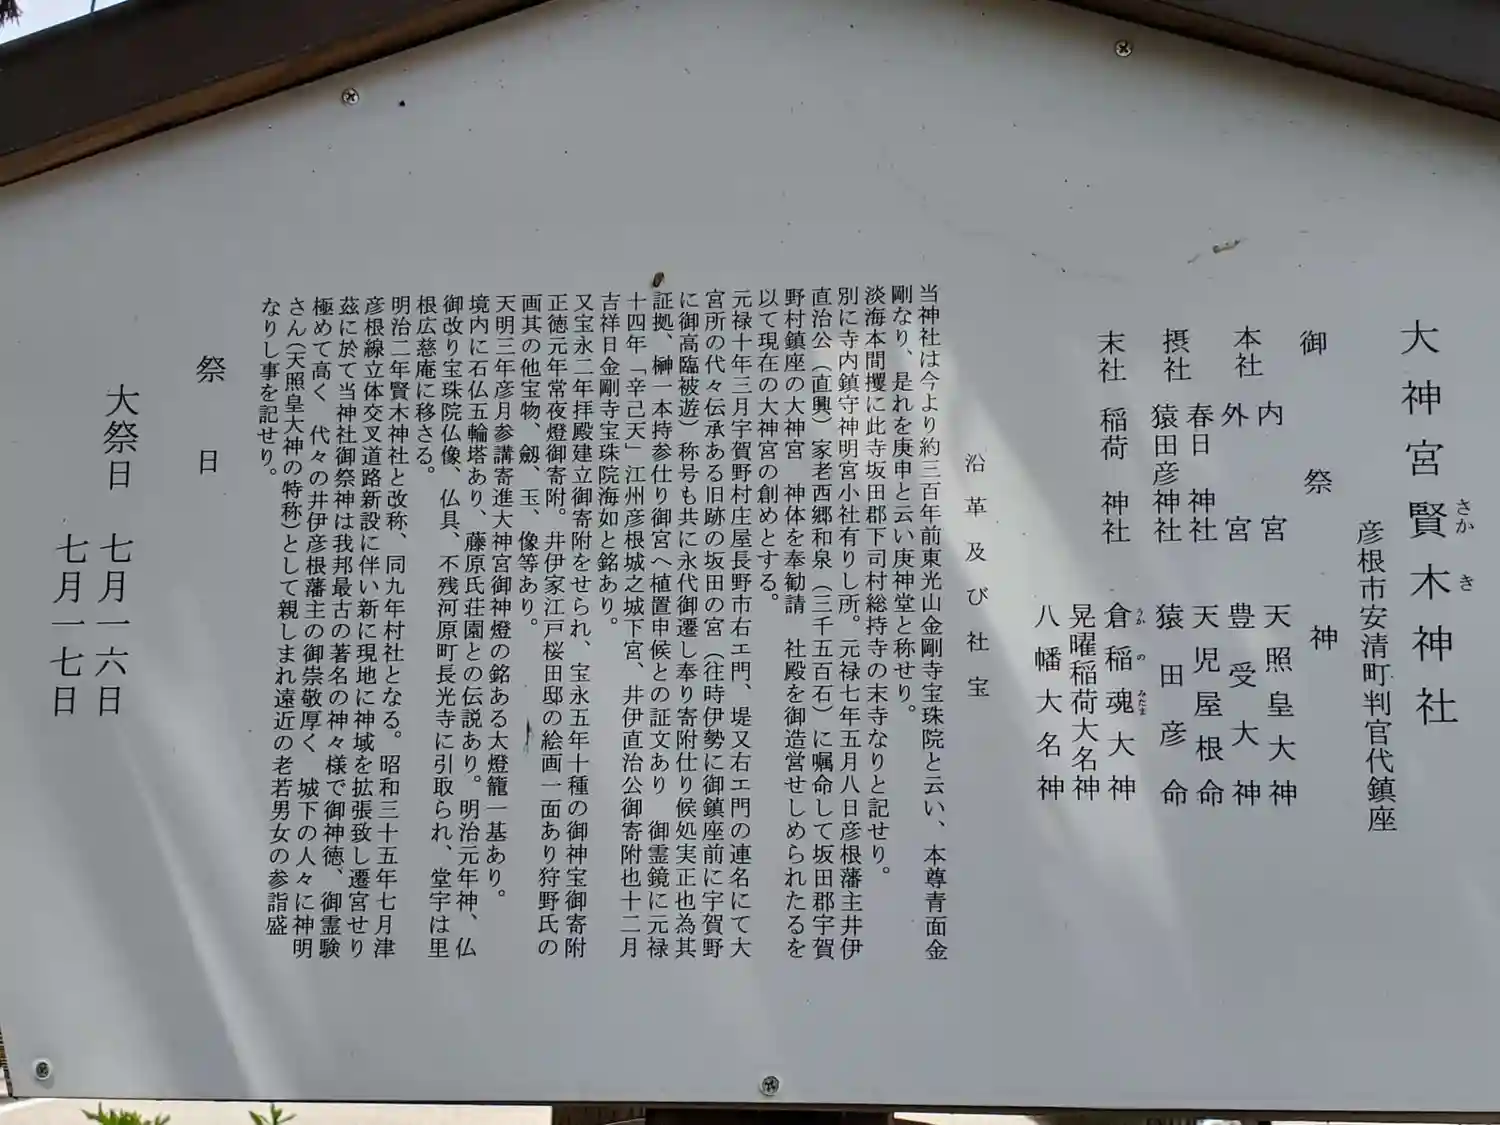 大神宮賢木神社
さか
き
彦根市安清町判官代鎮座
御祭神
本社 内宮 天照皇大神
外宮 豊受大神
摂社 春日神社 天児屋根命
猿田彦神社 猿田彦命
末社 稲荷神社 倉稲魂大神
うか
の
みたま
晃曜稲荷大名神
八幡大名神
沿革及び社宝
当神社は今より約三百年前東光山金剛寺宝珠院と云い、本尊青面金
剛なり、是れを庚申と云い庚神堂と称せり。
淡海本間攖に此寺坂田郡下司村総持寺の末寺なりと記せり。
別に寺内鎮守神明宮小社有りし所。元禄七年五月八日彦根藩主井伊
直治公（直興）家老西郷和泉（三千五百石）に嘱命して坂田郡宇賀
野村鎮座の大神宮 神体を奉勧請 社殿を御造営せしめられたるを
以て現在の大神宮の創めとする。
元禄十年三月宇賀野村庄屋長野市右エ門、堤又右エ門の連名にて大
宮所の代々伝承ある旧跡の坂田の宮（往時伊勢に御鎮座前に宇賀野
に御高臨被遊）称号も共に永代御遷し奉り寄附仕り候処実正也為其
証拠、榊一本持参仕り御宮へ植置申候との証文あり 御霊鏡に元禄
十四年「辛己天」江州彦根城之城下宮、井伊直治公御寄附也十二月
吉祥日金剛寺宝珠院海如と銘あり。
又宝永二年拝殿建立御寄附をせられ、宝永五年十種の御神宝御寄附
正徳元年常夜燈御寄附。井伊家江戸桜田邸の絵画一面あり狩野氏の
画其の他宝物、劔、玉、像等あり。
天明三年彦月参講寄進大神宮御神燈の銘ある太燈籠一基あり。
境内に石仏五輪塔あり、藤原氏荘園との伝説あり。明治元年神、仏
御改り宝珠院仏像、仏具、不残河原町長光寺に引取られ、堂宇は里
根広慈庵に移さる。
明治二年賢木神社と改称、同九年村社となる。昭和三十五年七月津
彦根線立体交叉道路新設に伴い新に現地に神域を拡張致し遷宮せり
茲に於て当神社御祭神は我邦最古の著名の神々様で御神徳、御霊験
極めて高く 代々の井伊彦根藩主の御崇敬厚く 城下の人々に神明
さん（天照皇大神の特称）として親しまれ遠近の老若男女の参詣盛
なりし事を記せり。
祭日
大祭日 七月一六日
七月一七日